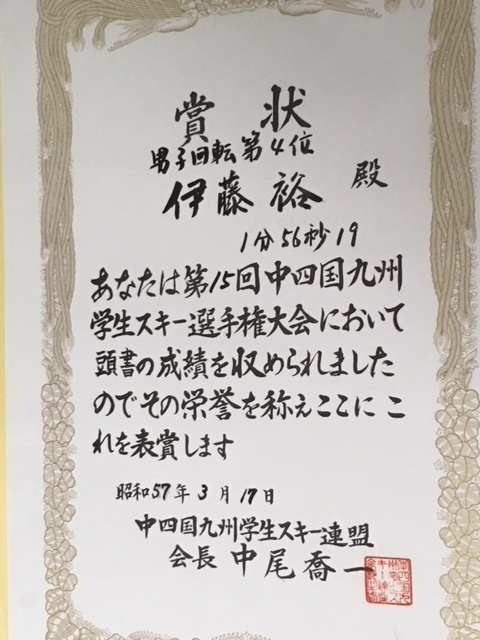 賞状
男子回転第4位
伊藤裕殿
1分56秒19
あなたは第15回中四国九州
学生スキー選手権大会において
頭書の成績を収められました
のでその栄誉を称えここにこ
れを表賞します
昭和57年3月17日
中四国九州学生スキー連盟
会長 中尾喬一